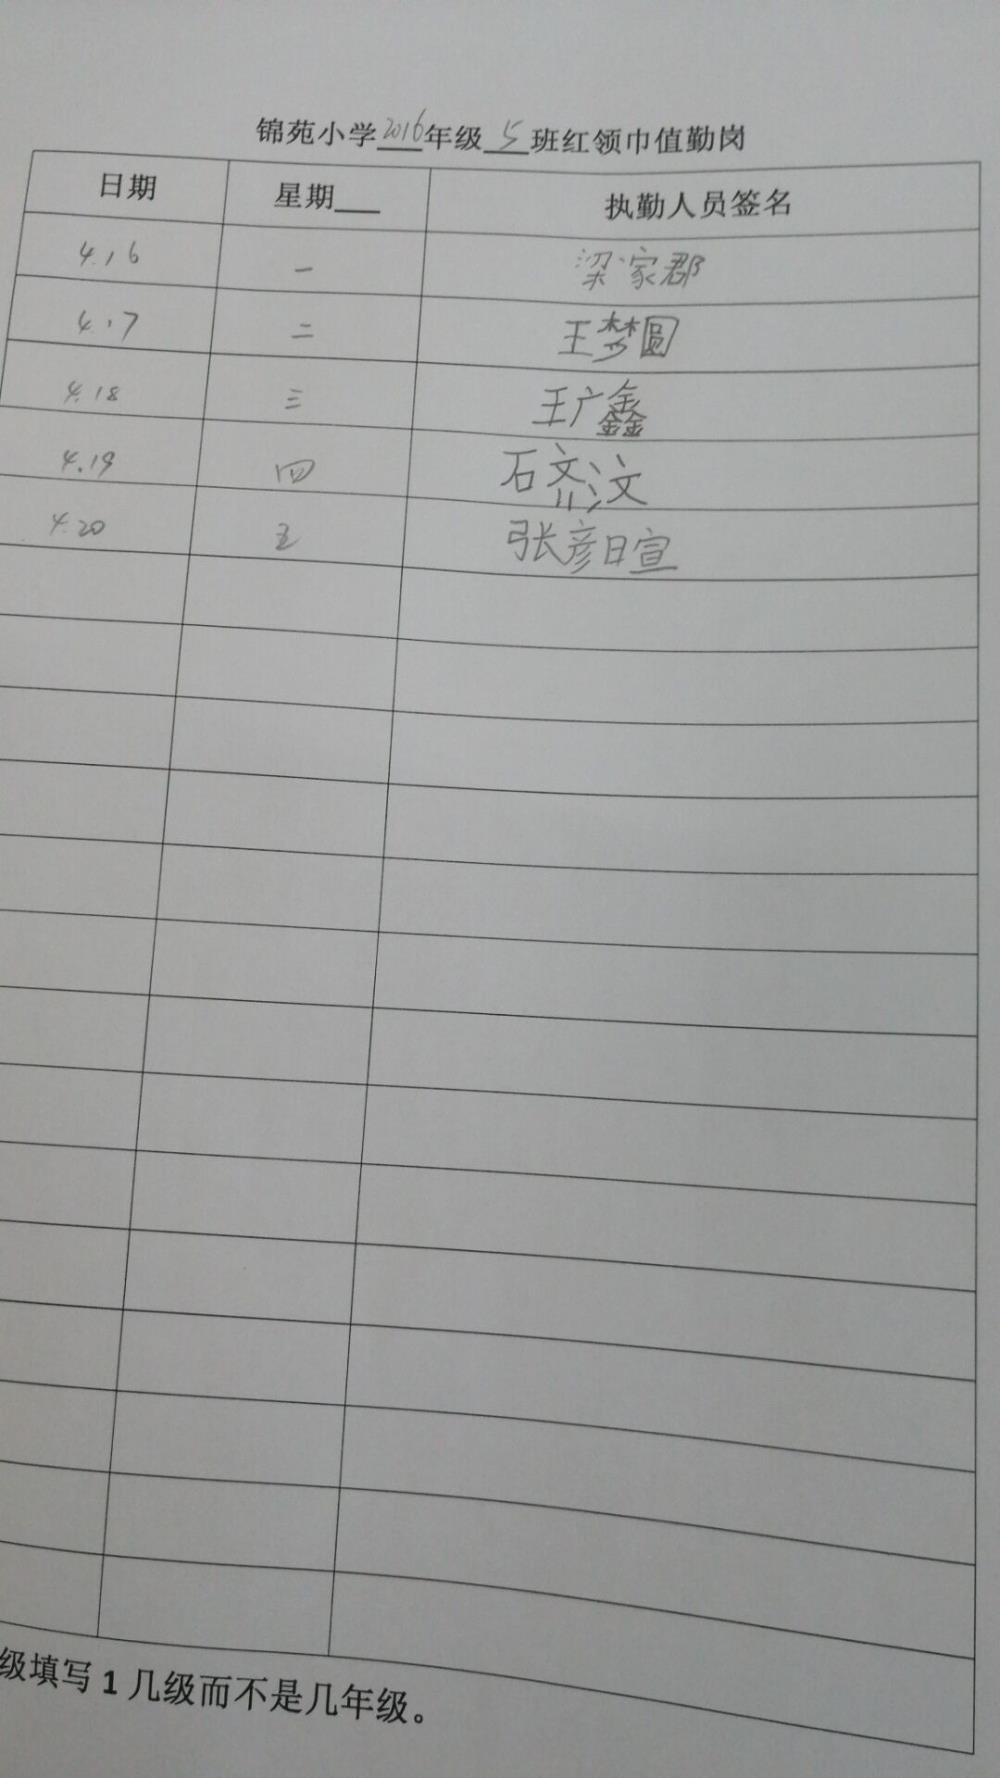 锦苑小学2016年级5班红领巾值勤岗
日期 星期___ 执勤人员签名
4.16 一 梁家郡
4.17 二 王梦圆
4.18 三 王广鑫
4.19 四 石齐汶
4.20 五 张彦日宣
级填写1几级而不是几年级。